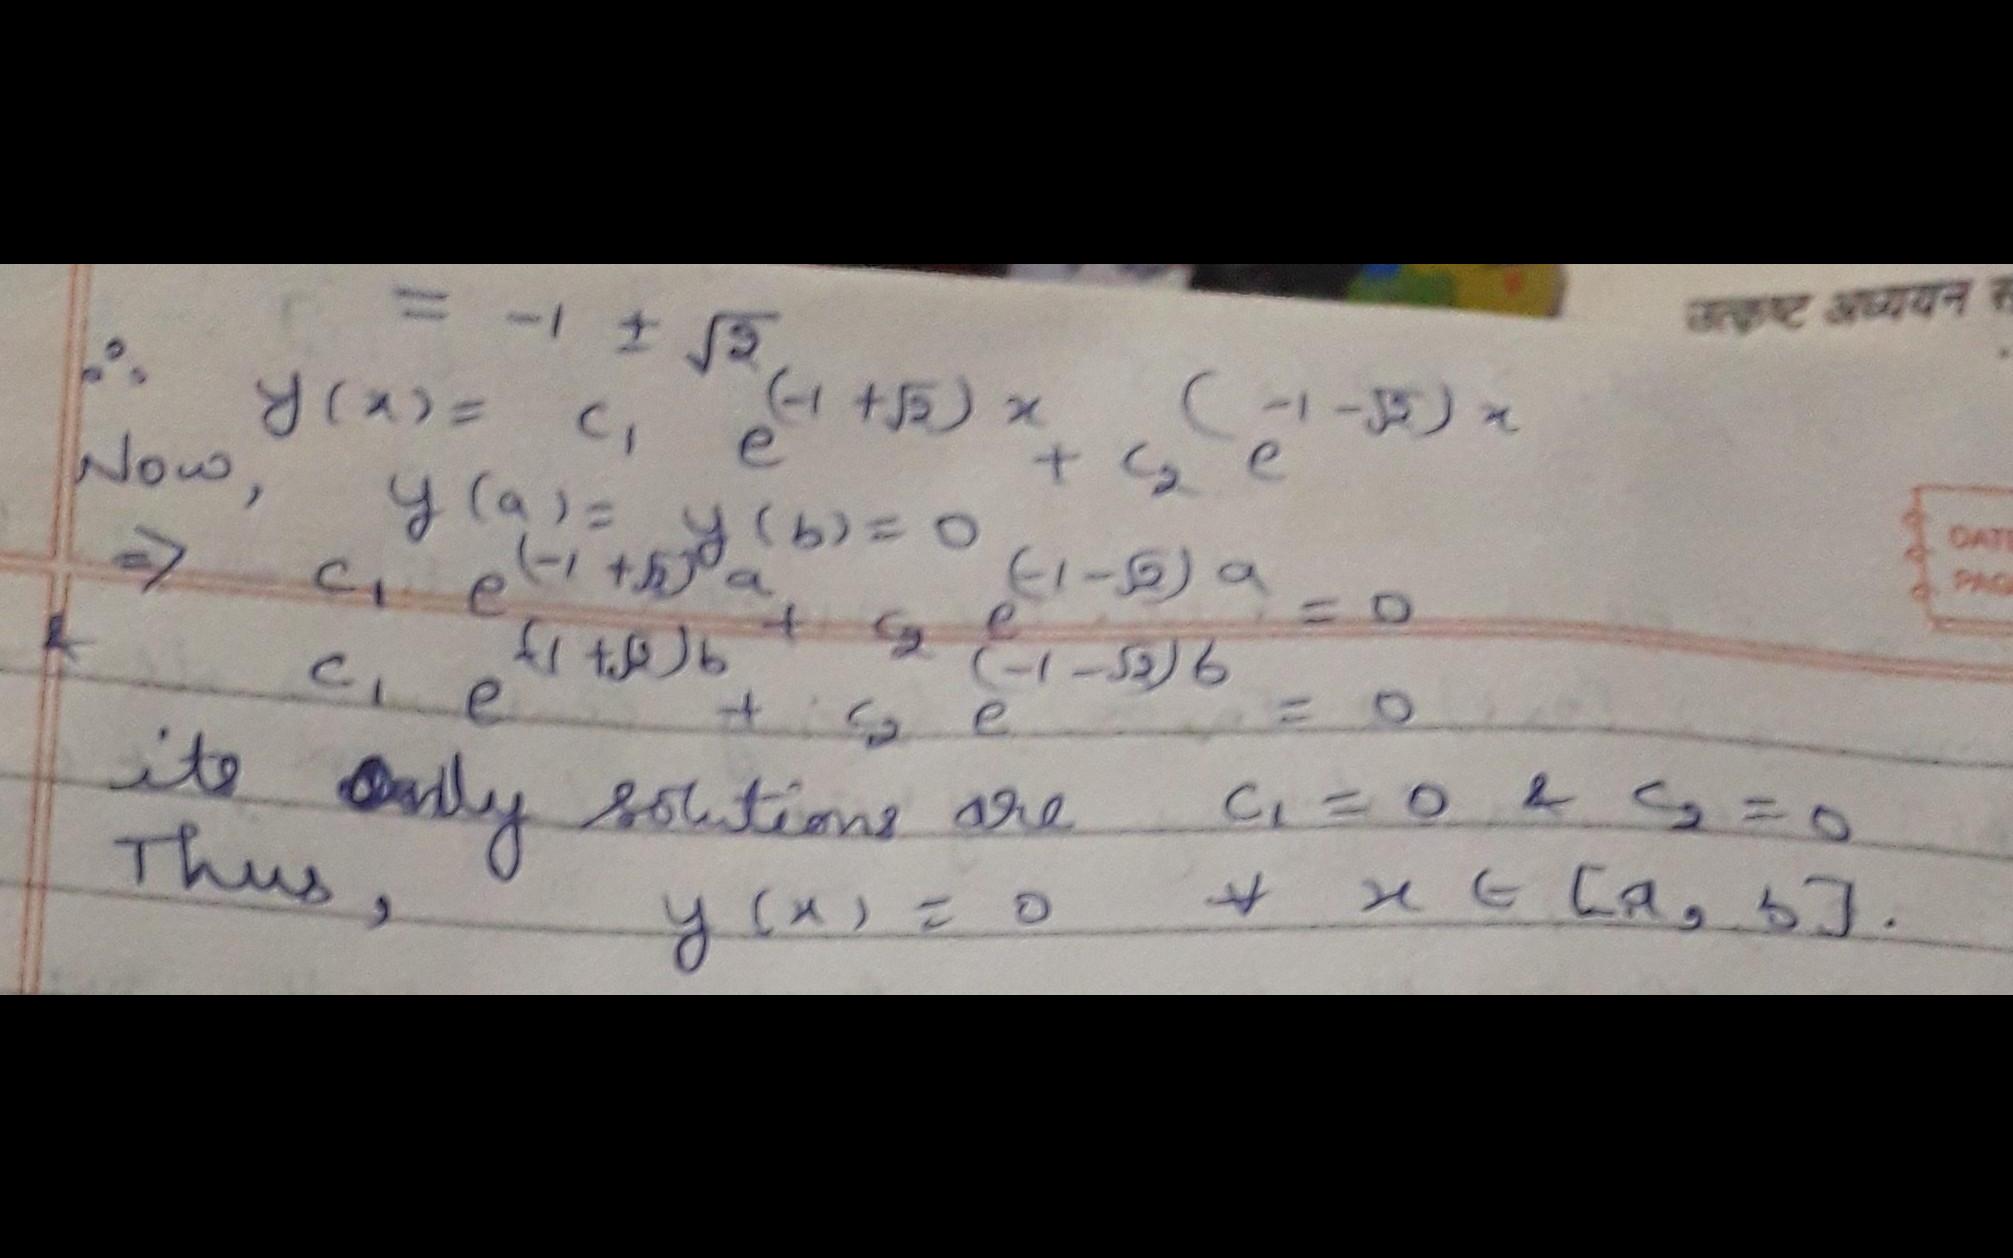 = -1 ± √2
उत्कृष्ट अध्ययन
∴ y(x) = c₁ e^(-1+√2)x + c₂ e^(-1-√2)x
Now, y(a) = y(b) = 0
DATE
PAG
⇒ c₁ e^(-1+√2)a + c₂ e^(-1-√2)a = 0
& c₁ e^(-1+√2)b + c₂ e^(-1-√2)b = 0
its only solutions are c₁ = 0 & c₂ = 0
Thus, y(x) = 0 ∀ x ∈ [a, b].